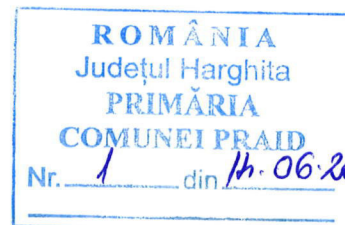 ROMÂNIA
Județul Harghita
PRIMĂRIA
COMUNEI PRAID
Nr. 1 din 14.06.20